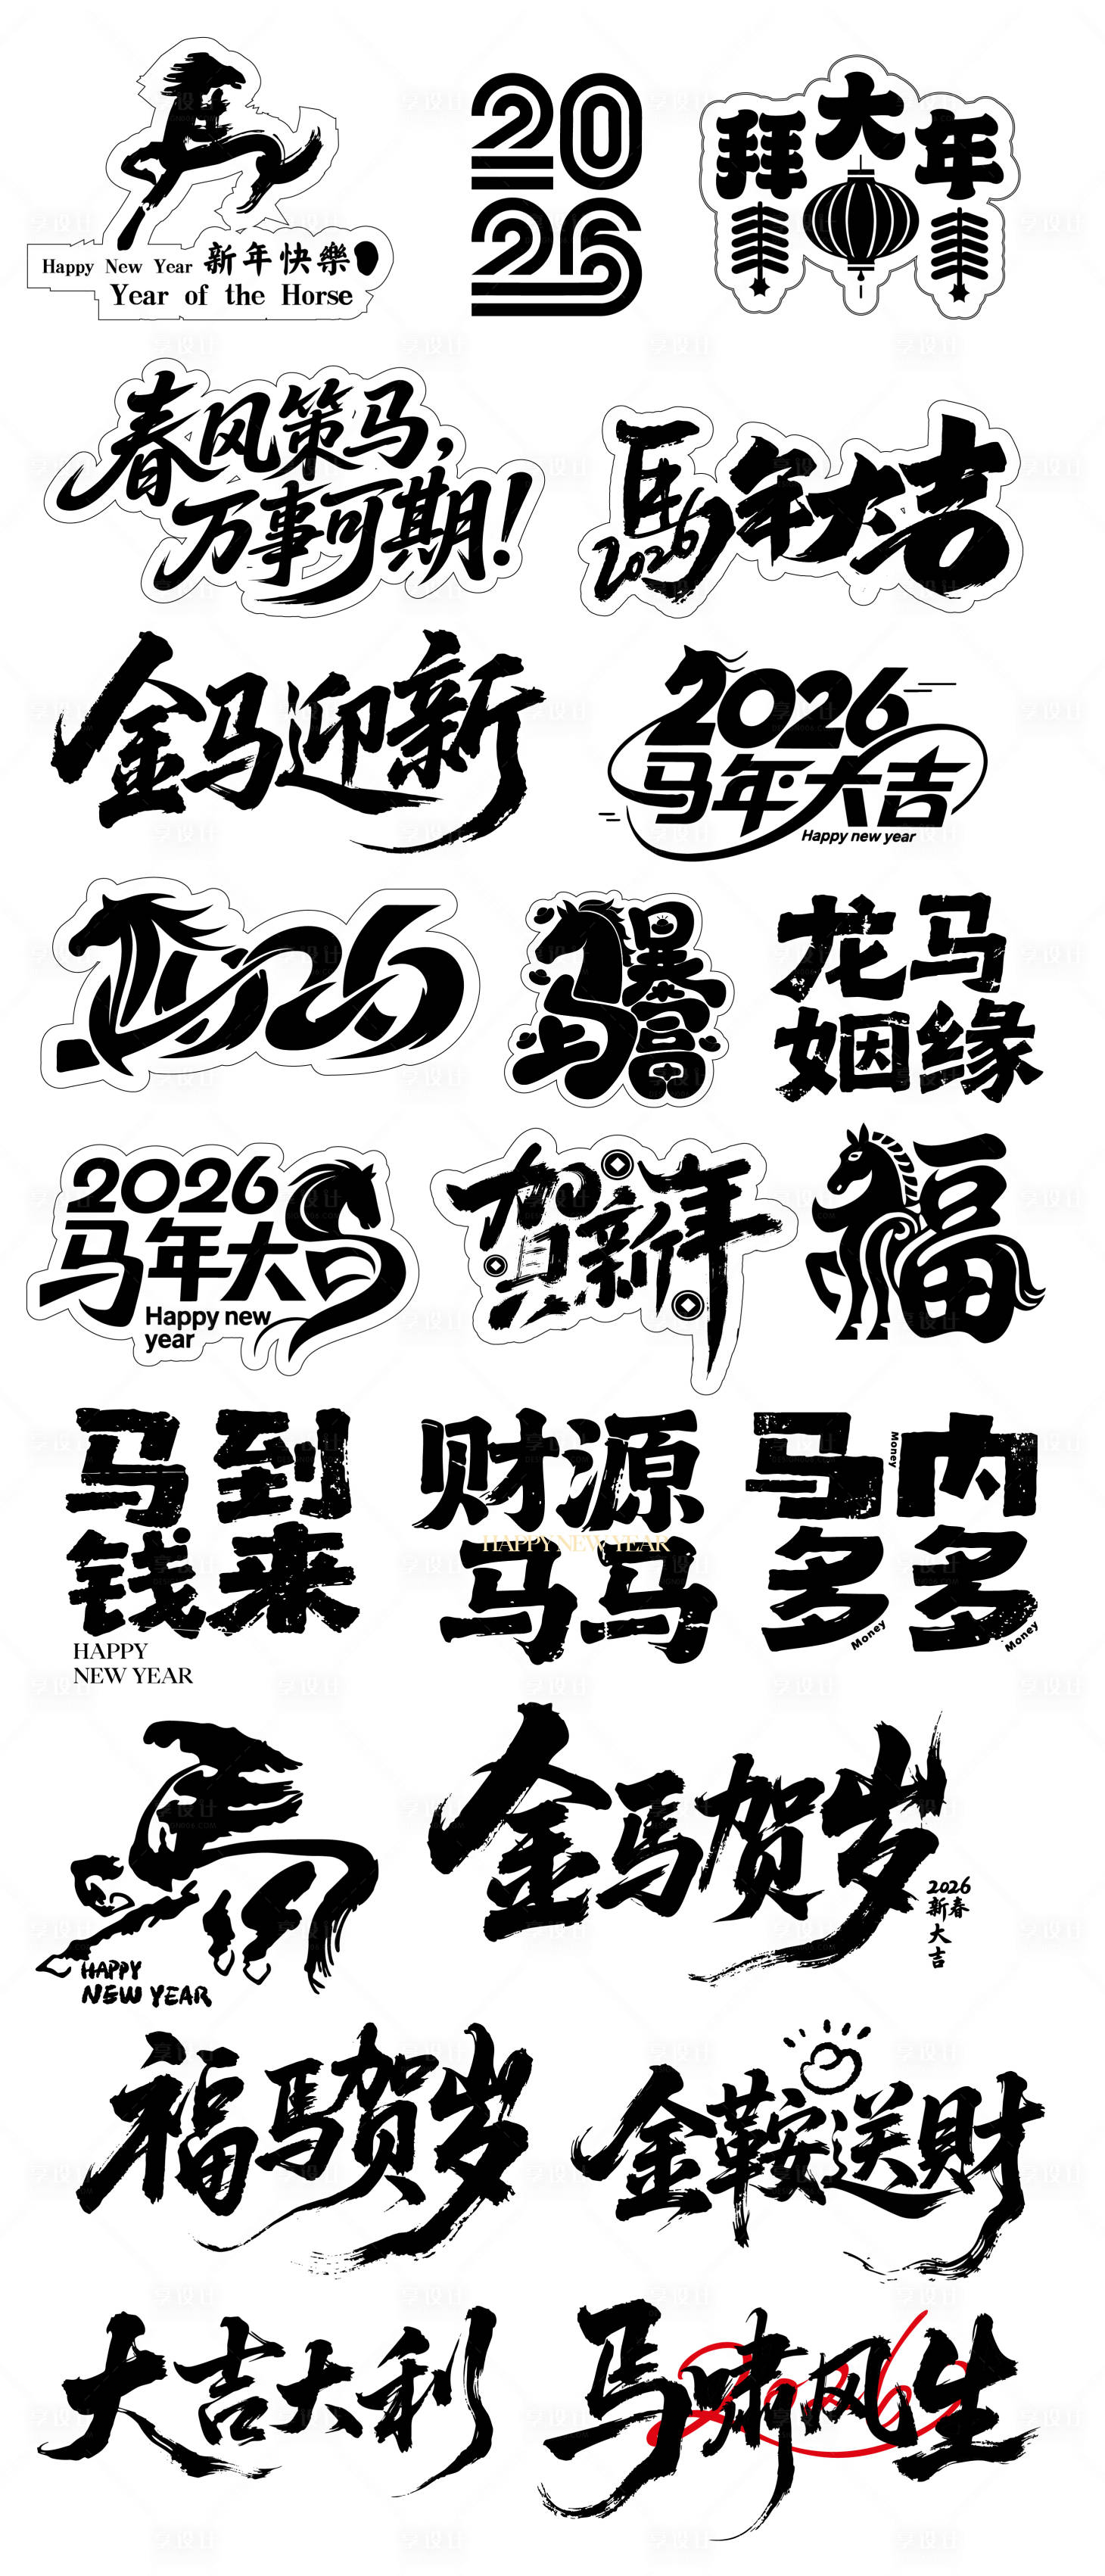 馬
Happy New Year 新年快樂
Year of the Horse
20
26
拜大年
春风策马,
万事可期!
馬年大吉
2026
金马迎新
2026
马年大吉
Happy new year
2026
马上暴富
龙马
姻缘
2026
马年大吉
Happy new
year
贺新年
福
马到
钱来
HAPPY
NEW YEAR
财源
HAPPY NEW YEAR
马马
马内
多多
Money
Money
Money
馬
HAPPY
NEW YEAR
金馬贺岁
2026
新春
大
吉
福馬贺岁
金鞍送財
大吉大利
马啸风生
2026
享设计